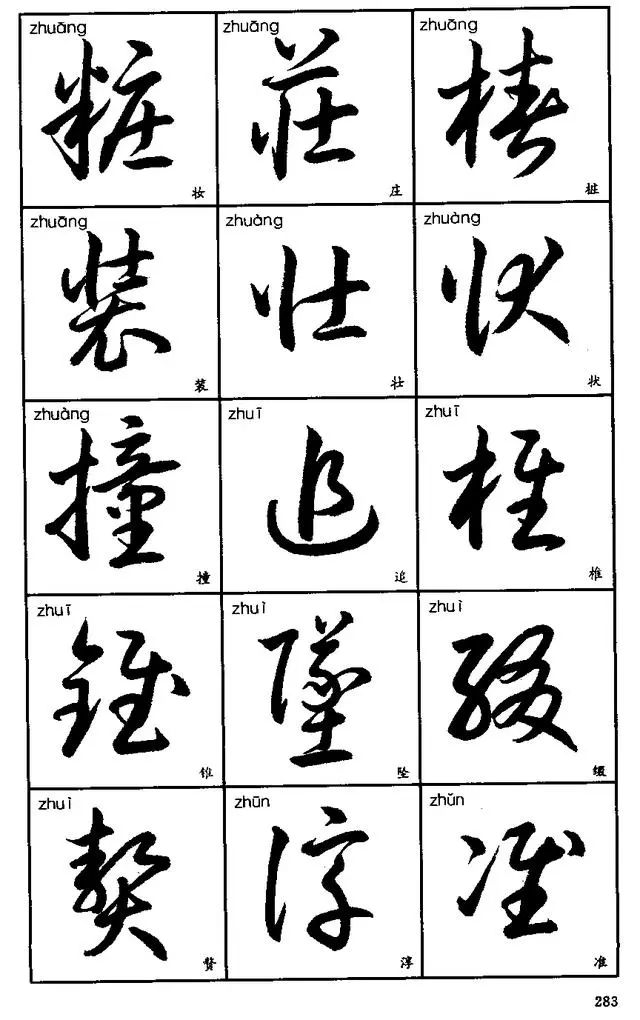 zhuāng zhuāng zhuāng
粧 莊 樁
妆 庄 桩
zhuāng zhuàng zhuàng
裝 壮 状
装 壮 状
zhuàng zhuī zhuī
撞 追 椎
撞 追 椎
zhuī zhuì zhuì
錐 墜 綴
锥 坠 缀
zhuì zhūn zhǔn
贅 淳 准
赘 淳 准
283